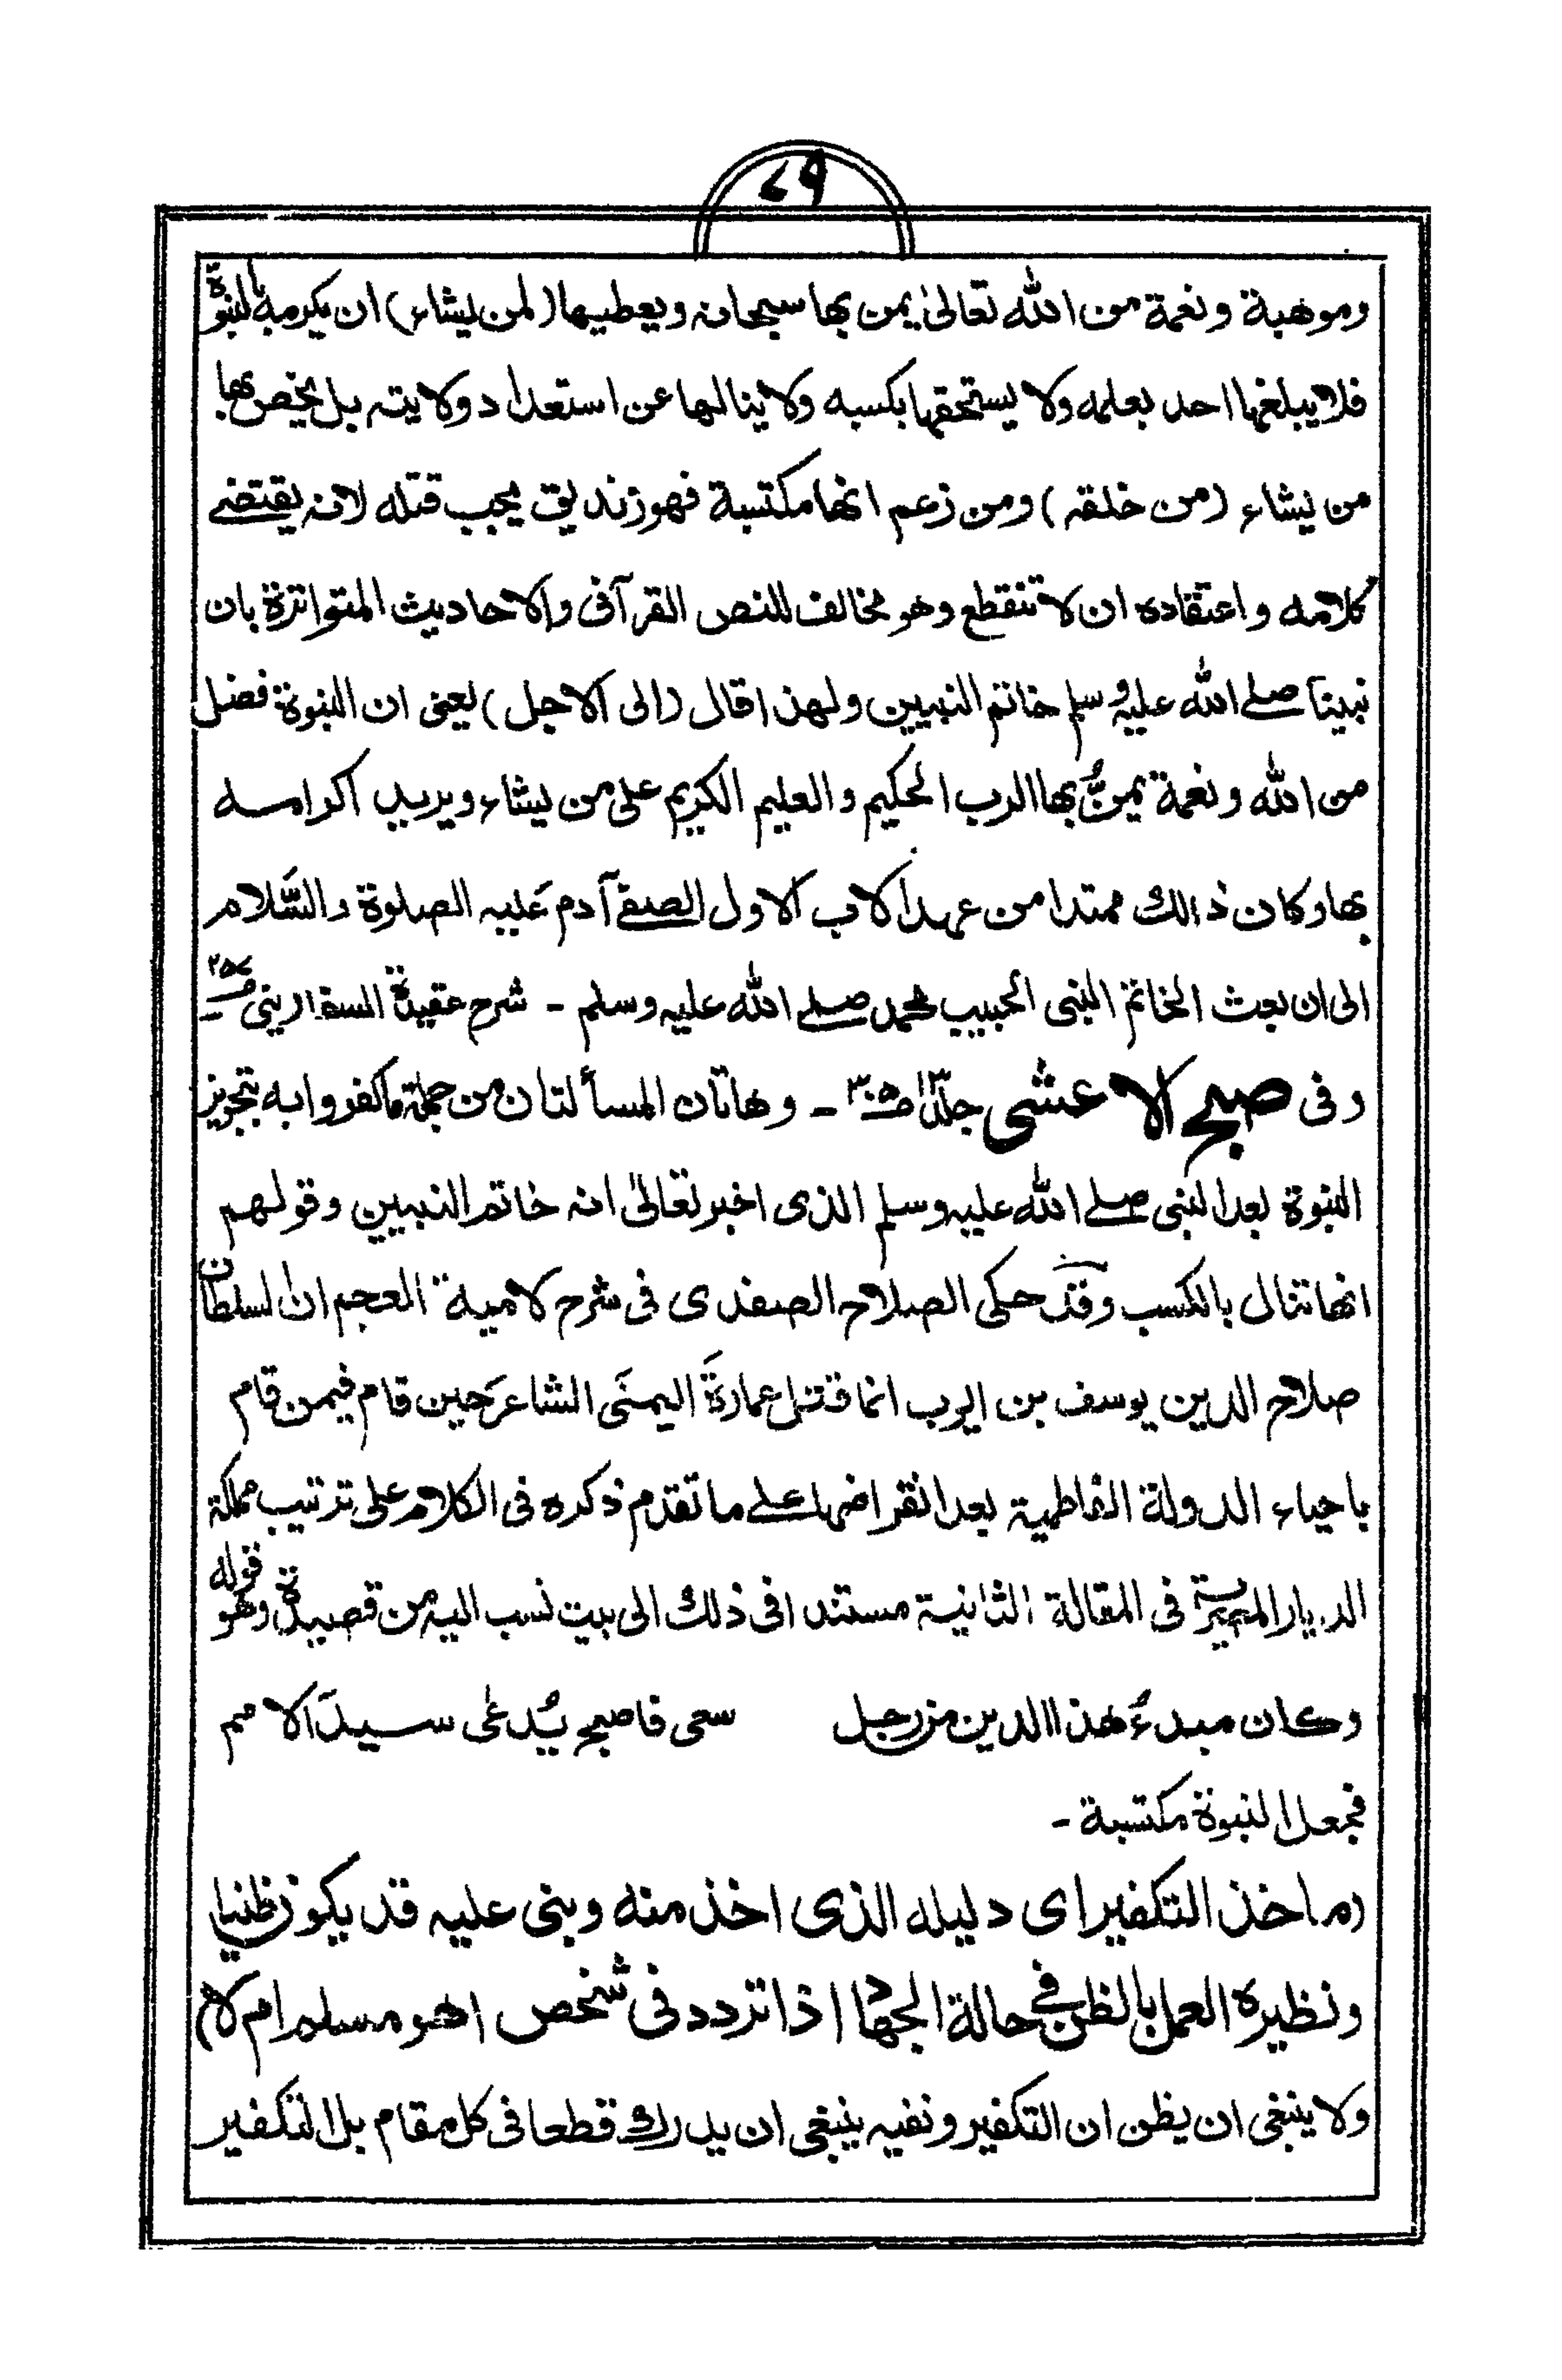 ٦٩
وموهبة ونعمة من الله تعالىٰ يمن بها سبحانه ويعطيها (لمن يشاء) ان يكرمه بالنبوّة
فلا يبلغها احد بعلمه ولا يستحقها بكسبه ولا ينالها عن استعداد ولايته بل يخص بها
من يشاء (من خلقه) ومن زعم انها مكتسبة فهو زنديق يجب قتله لانه يقتضے
كلامه واعتقاده ان لا تنقطع وهو مخالف للنص القرآنى والاحاديث المتواترة بان
نبينا صلے الله عليه وسلم خاتم النبيين ولهذا قال (الى الاجل) يعنى ان النبوة فضل
من الله ونعمة يمنُّ بها الرب الحكيم والعليم الكريم على من يشاء ويريد اكرامه
بها وكان ذالك ممتدا من عهد الاب الاول الصفے آدم عَليه الصلوة والسَّلام
الى ان بعث الخاتم النبى الحبيب محمد صلے الله عليه وسلم - شرح عقيدة السفارينى صـ ٢٥٧
وفى صبح الاعشى جلد ١٣ صـ ٣٠٥ - وهاتان المسألتان من جملة ما كفروا به بتجويز
النبوة بعد النبى صلے الله عليه وسلم الذى اخبر تعالىٰ انه خاتم النبيين وقولهم
انها تنال بالكسب وقد حكى الصلاح الصفدى فى شرح لامية العجم ان السلطان
صلاح الدين يوسف بن ايوب انما قتل عمارةَ اليمنَى الشاعرَ حين قام فيمن قام
باحياء الدولة الفاطمية بعد انقراضها علے ما تقدم ذكره فى الكلام على ترتيب مملكة
الديار المصرية فى المقالة الثانية مستندا فى ذلك الى بيت نسب اليه من قصيدة وهو قوله
وكان مبدءُ هذا الدين من رجل سعى فاصبح يُدعٰى سيدَ الامم
فجعل النبوة مكتسبة -
(ماخذ التكفير اى دليله الذى اخذ منه وبنى عليه قد يكون ظنيا
ونظيره العمل بالظن فے حالة الجهاد اذا تردد فى شخص اهو مسلم ام لا)
ولا ينبغى ان يظن ان التكفير ونفيه ينبغى ان يدرك قطعا فى كل مقام بل التكفير